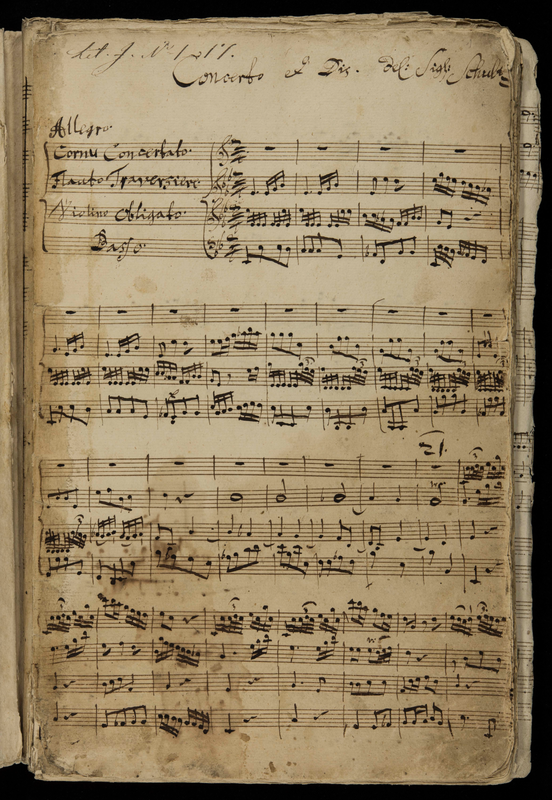 Concerto ex Dis. del Sigr
Allegro.
Cornu Concertato.
Flauto Traversiere
Violino Obligato.
Basso.
21.